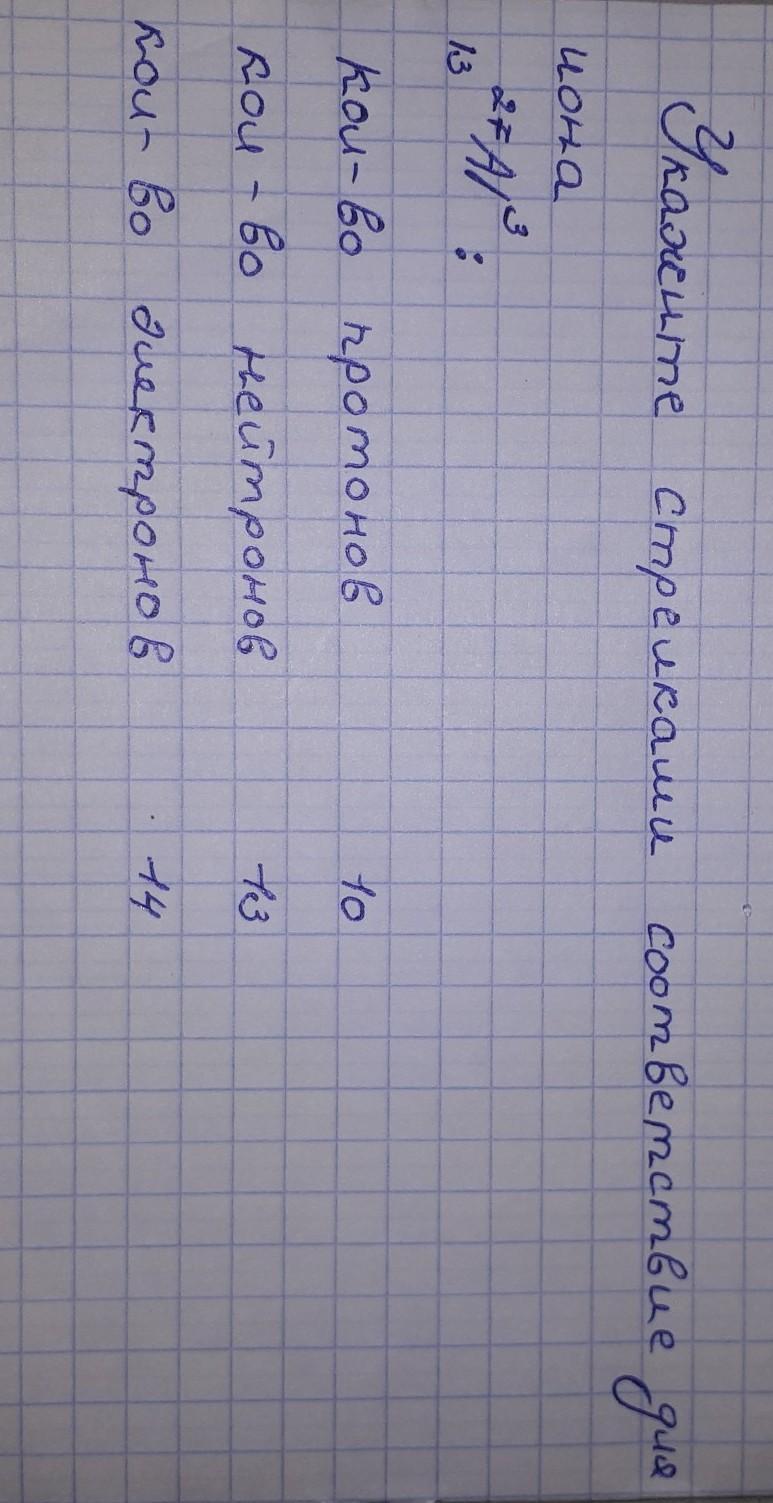 Укажите стрелками соответствие для
иона
27 Al 3 :
13
кол-во протонов 10
кол-во нейтронов 13
кол-во электронов 14